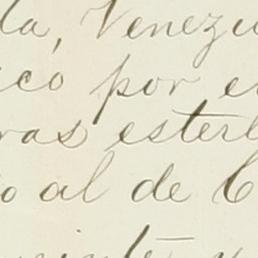 da, Venezu
ico por e
ras esterl
o al de C